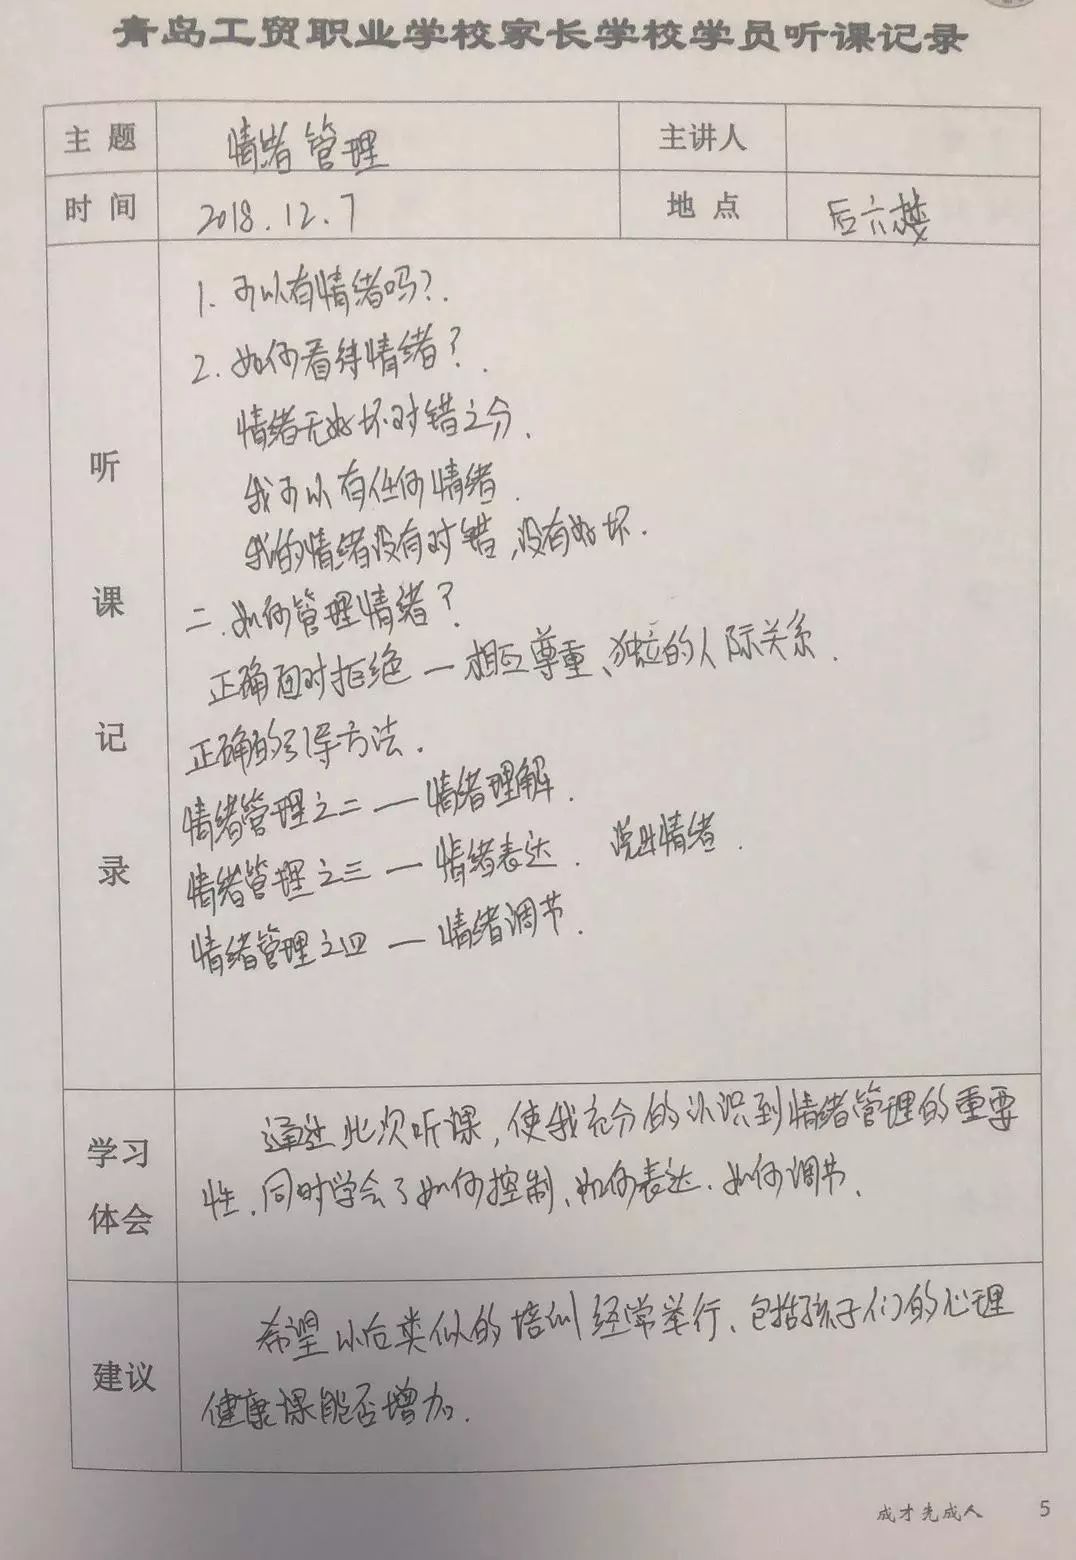 青岛工贸职业学校家长学校学员听课记录
主题 情绪管理 主讲人
时间 2018.12.7 地点 后六楼
听课记录
1. 可以有情绪吗?.
2. 如何看待情绪?.
情绪无好坏对错之分.
我可以有任何情绪.
我的情绪没有对错,没有好坏.
二.如何管理情绪?
正确面对拒绝一相互尊重、独立的人际关系.
正确的引导方法.
情绪管理之二 — 情绪理解.
情绪管理之三 — 情绪表达. 说出情绪.
情绪管理之四 — 情绪调节.
学习体会
通过此次听课,使我充分的认识到情绪管理的重要
性.同时学会了如何控制、如何表达、如何调节.
建议
希望以后类似的培训经常举行、包括孩子们的心理
健康课能否增加.
成才先成人 5